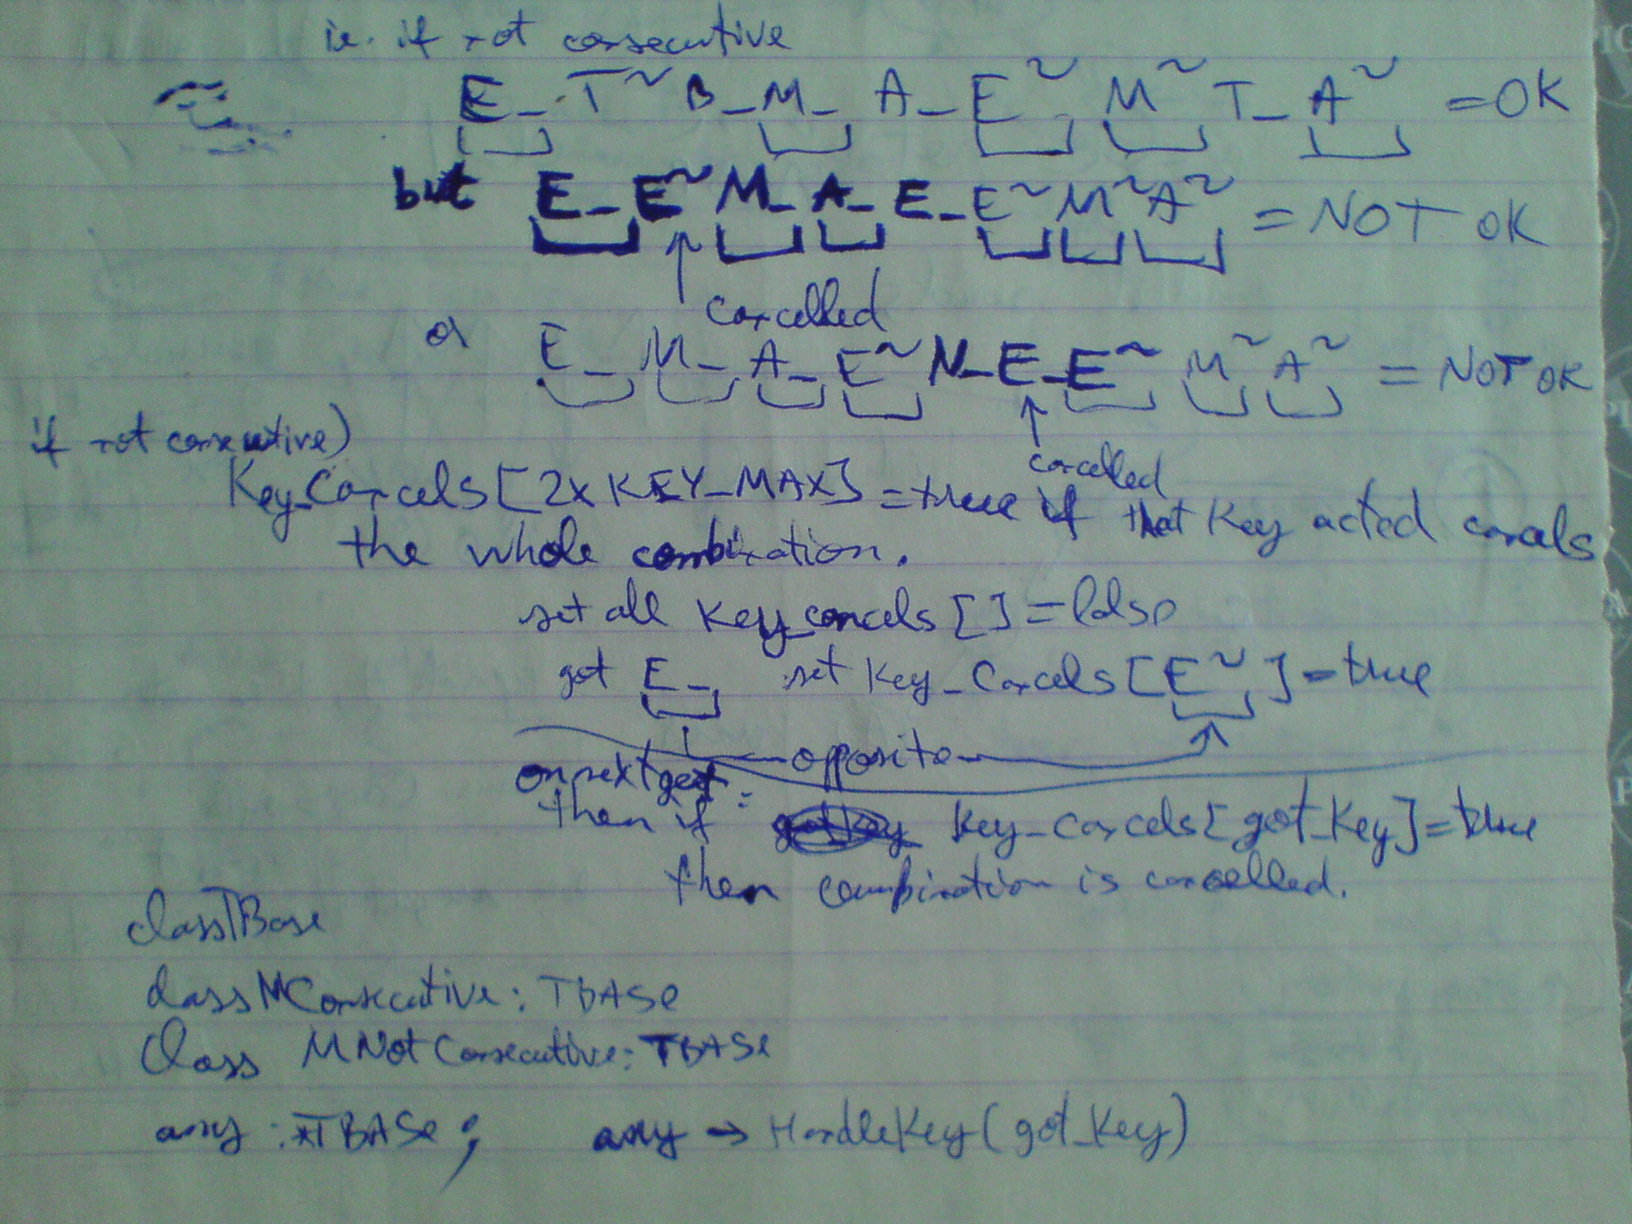 ie. if not consecutive
E_ T~ B_ M_ A_ E~ M~ T_ A~ = OK
but E_ E~ M_ A_ E_ E~ M~ A~ = NOT OK
cancelled
or E_ M_ A_ E~ N_ E_ E~ M~ A~ = NOT OK
cancelled
if not consecutive)
Key_Cancels[2x KEY_MAX] = true if that key acted cancels
the whole combination.
set all key_cancels[] = false
got E_ set key_Cancels[E~] = true
opposite
on next get:
then if key_cancels[got_key] = true
then combination is cancelled.
class TBase
class MConsecutive : TBASE
Class MNotConsecutive : TBASE
any : *TBASE; any → HandleKey(got_key)